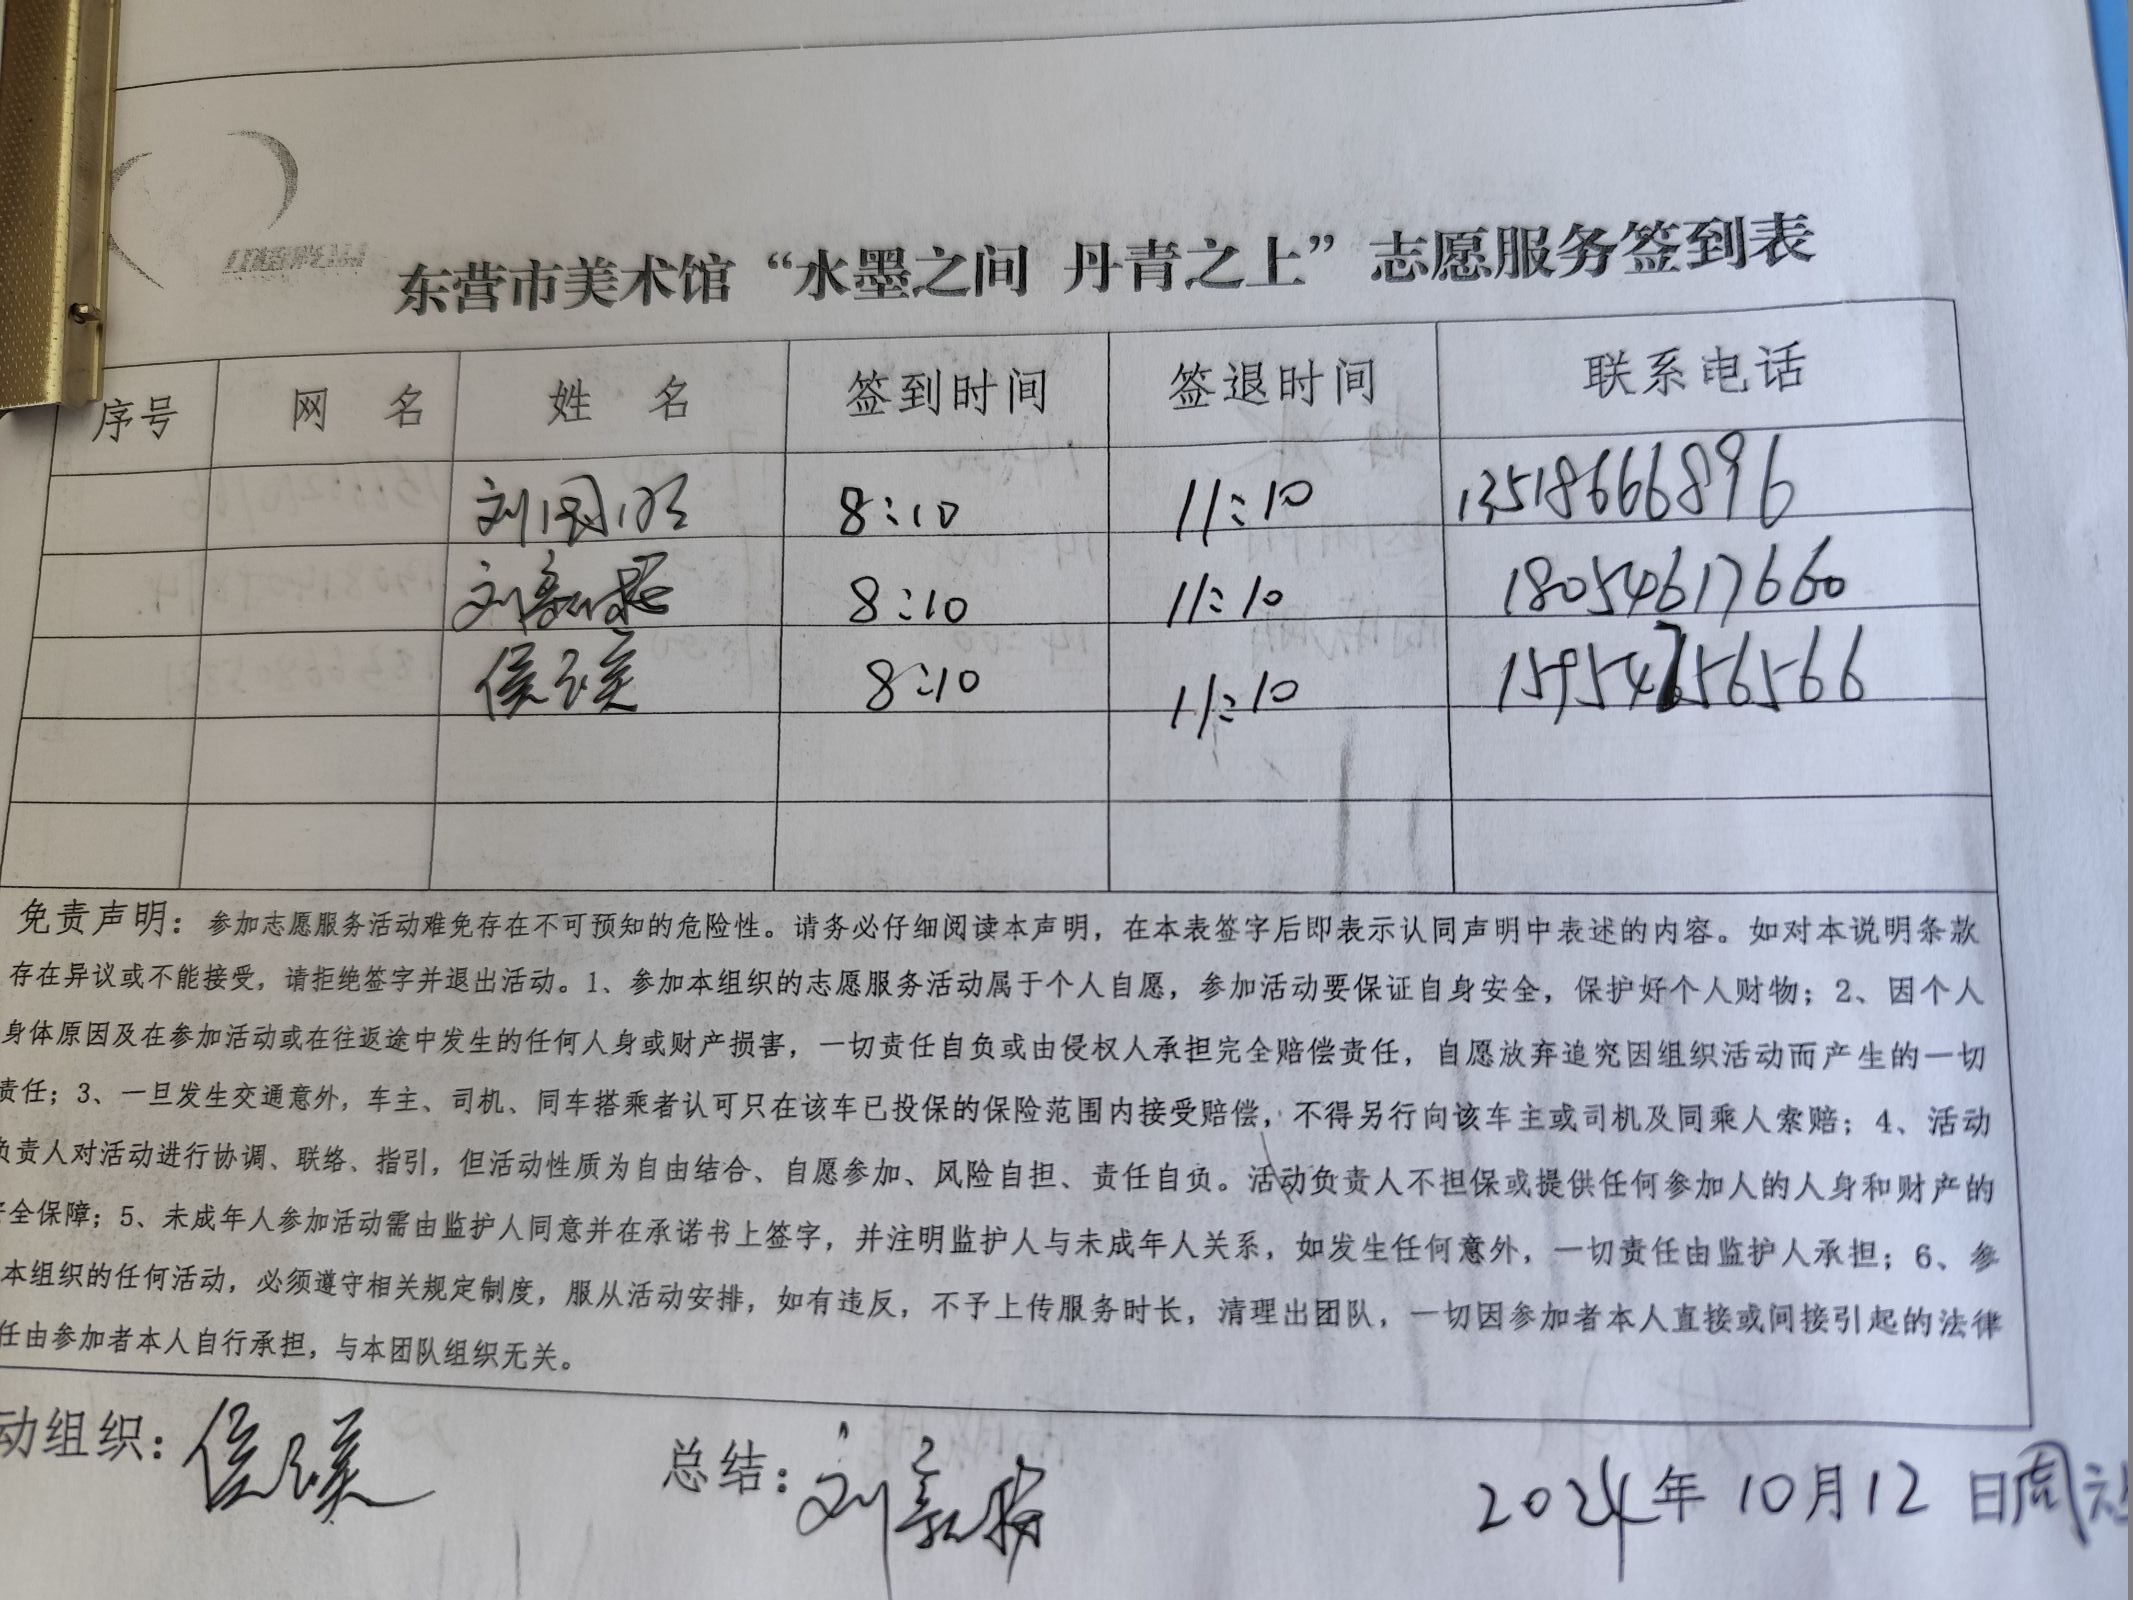 东营市美术馆“水墨之间 丹青之上”志愿服务签到表
序号 网 名 姓 名 签到时间 签退时间 联系电话
刘国 8:10 11:10 13518666896
刘新 8:10 11:10 18054617660
侯瑛 8:10 11:10 15954756566
免责声明：参加志愿服务活动难免存在不可预知的危险性。请务必仔细阅读本声明，在本表签字后即表示认同声明中表述的内容。如对本说明条款
存在异议或不能接受，请拒绝签字并退出活动。1、参加本组织的志愿服务活动属于个人自愿，参加活动要保证自身安全，保护好个人财物；2、因个人
身体原因及在参加活动或在往返途中发生的任何人身或财产损害，一切责任自负或由侵权人承担完全赔偿责任，自愿放弃追究因组织活动而产生的一切
责任；3、一旦发生交通意外，车主、司机、同车搭乘者认可只在该车已投保的保险范围内接受赔偿，不得另行向该车主或司机及同乘人索赔；4、活动
负责人对活动进行协调、联络、指引，但活动性质为自由结合、自愿参加、风险自担、责任自负。活动负责人不担保或提供任何参加人的人身和财产的
安全保障；5、未成年人参加活动需由监护人同意并在承诺书上签字，并注明监护人与未成年人关系，如发生任何意外，一切责任由监护人承担；6、参
本组织的任何活动，必须遵守相关规定制度，服从活动安排，如有违反，不予上传服务时长，清理出团队，一切因参加者本人直接或间接引起的法律
任由参加者本人自行承担，与本团队组织无关。
动组织：侯瑛 总结：刘新 2024年10月12日周六